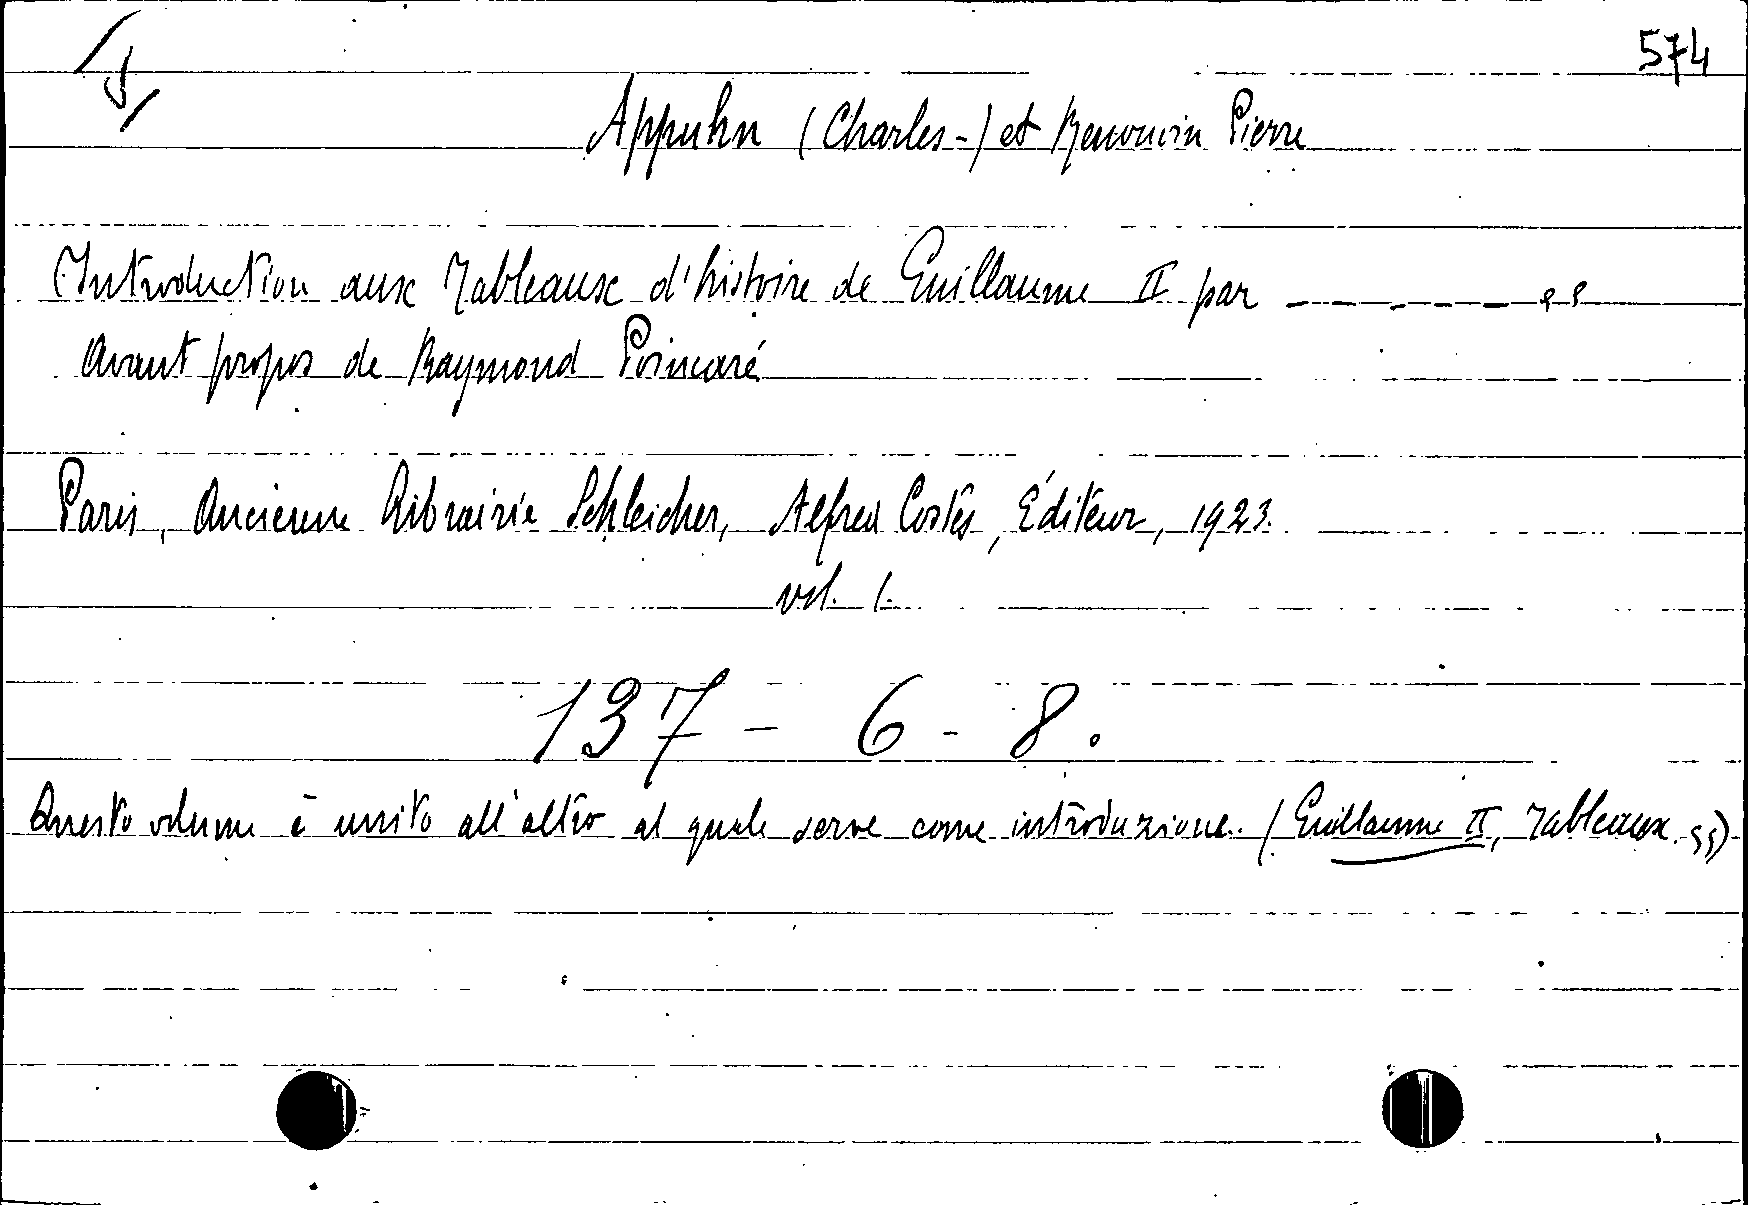 574
Appuhn (Charles-) et Renouvin Pierre
Introduction aux Tableaux d'histoire de Guillaume II par - - - - - - -
Avant propos de Raymond Poincaré
Paris, Ancienne Librairie Schleicher, Alfred Costes, Éditeur, 1923.
vol. 1.
137 - 6 - 8.
Questo volume è unito all'altro al quale serve come introduzione. (Guillaume II, Tableaux